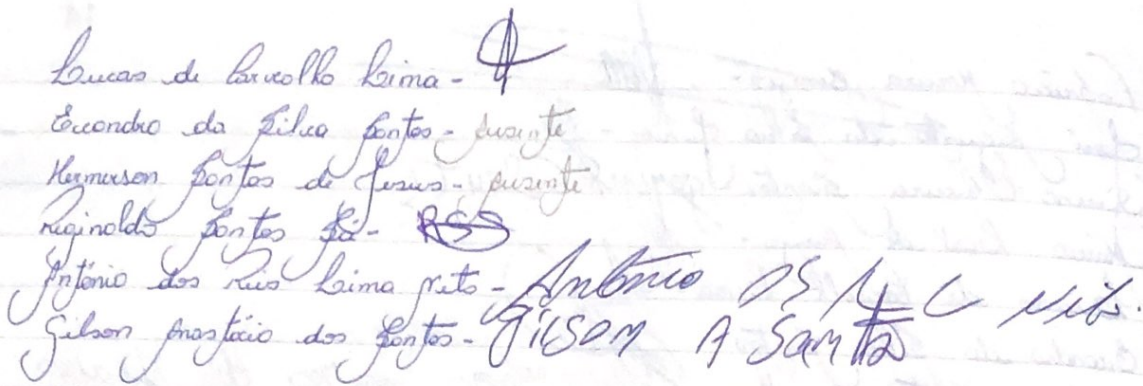 Lucas de Carvalho Lima -
Evandro da Silva Santos - Ausente
Hemerson Santos de Jesus - Ausente
Reginaldo Santos Sá - RSS
Antônio dos Reis Lima Neto - Antônio DS R L Neto.
Gilson Anastácio dos Santos - Gilson A Santos